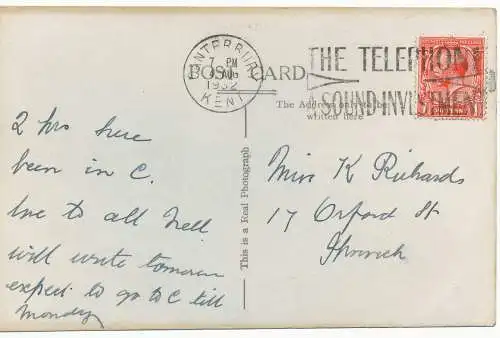 CANTERBURY
7 PM
AUG
1932
KENT
THE TELEPHONE
A SOUND INVESTMENT
POST CARD
The Address only to be
written here
This is a Real Photograph
2 hrs here
been in C.
love to all Nell
will write tomorrow
expect to go to C till
Monday
Miss K Richards
17 Orford St
Ipswich